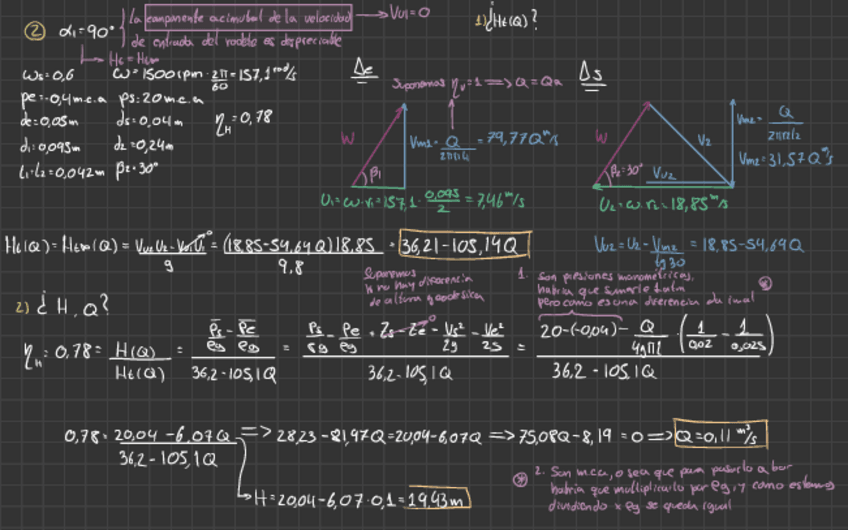 ② α₁=90° } la componente acimutal de la velocidad → Vu1=0
de entrada del rodete es despreciable
1) ¿Ht(Q)?
↳ Ht = Ht∞
ωs=0,6 ω=1500rpm·2π/60=157,1 rad/s
pe=-0,4m.c.a ps=20m.c.a
de=0,05m ds=0,04m ηH=0,78
d1=0,095m d2=0,24m
L1=L2=0,042m β2=30°
Δe
Suponemos ηv=1 ⟹ Q=Qa
W
β1
Vm1= Q/(2πr1L1) = 79,77Q m/s
U1=ω·r1=157,1·0,095/2=7,46 m/s
Δs
W
β2=30°
V2
Vu2
Vm2= Q/(2πr2L2)
Vm2=31,57Q m/s
U2=ω·r2=18,85 m/s
Ht(Q)=Ht∞(Q)= (Vu2U2-Vu1U1→0)/g = ((18,85-54,69Q)18,85)/9,8 = 36,21-105,19Q
Vu2=U2-Vm2/tg30 = 18,85-54,69Q
Suponemos
q no hay diferencia
de altura geodesica
1. Son presiones manometricas,
habria que sumarle 1atm
pero como es una diferencia da igual
2) ¿H, Q?
ηH=0,78= H(Q)/Ht(Q) = (p̄s/ρg - p̄e/ρg)/(36,2-105,1Q) = (ps/ρg - pe/ρg + zs-ze→0 - Vs²/2g - Ve²/2g)/(36,2-105,1Q) = (20-(-0,04)- Q/(4gπL)·(1/0,02 - 1/0,025))/(36,2-105,1Q)
0,78= (20,04-6,07Q)/(36,2-105,1Q) ⟹ 28,23-81,97Q=20,04-6,07Q ⟹ 75,08Q-8,19=0 ⟹ Q=0,11 m³/s
↳ H=20,04-6,07·0,1=19,43m
2. Son mca, o sea que para pasarlo a bar
habria que multiplicarlo por ρg, y como estamos
dividiendo x ρg se queda igual